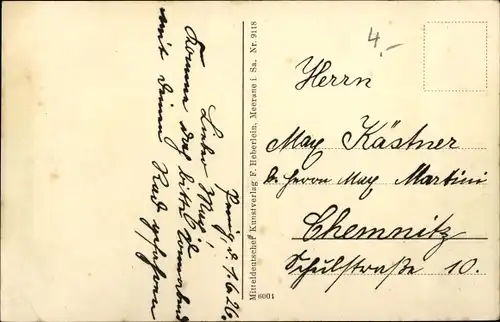 Penig, d. 7.6.26.
Lieber Max!
Komme doch bitte Sonnabend
mit deinem Rad gefahren
Mitteldeutscher Kunstverlag F. Heberlein, Meerane i. Sa. Nr. 9118
6001
4.-
Herrn
Max Kästner
bei Herrn Max Martini
Chemnitz
Schulstraße 10.